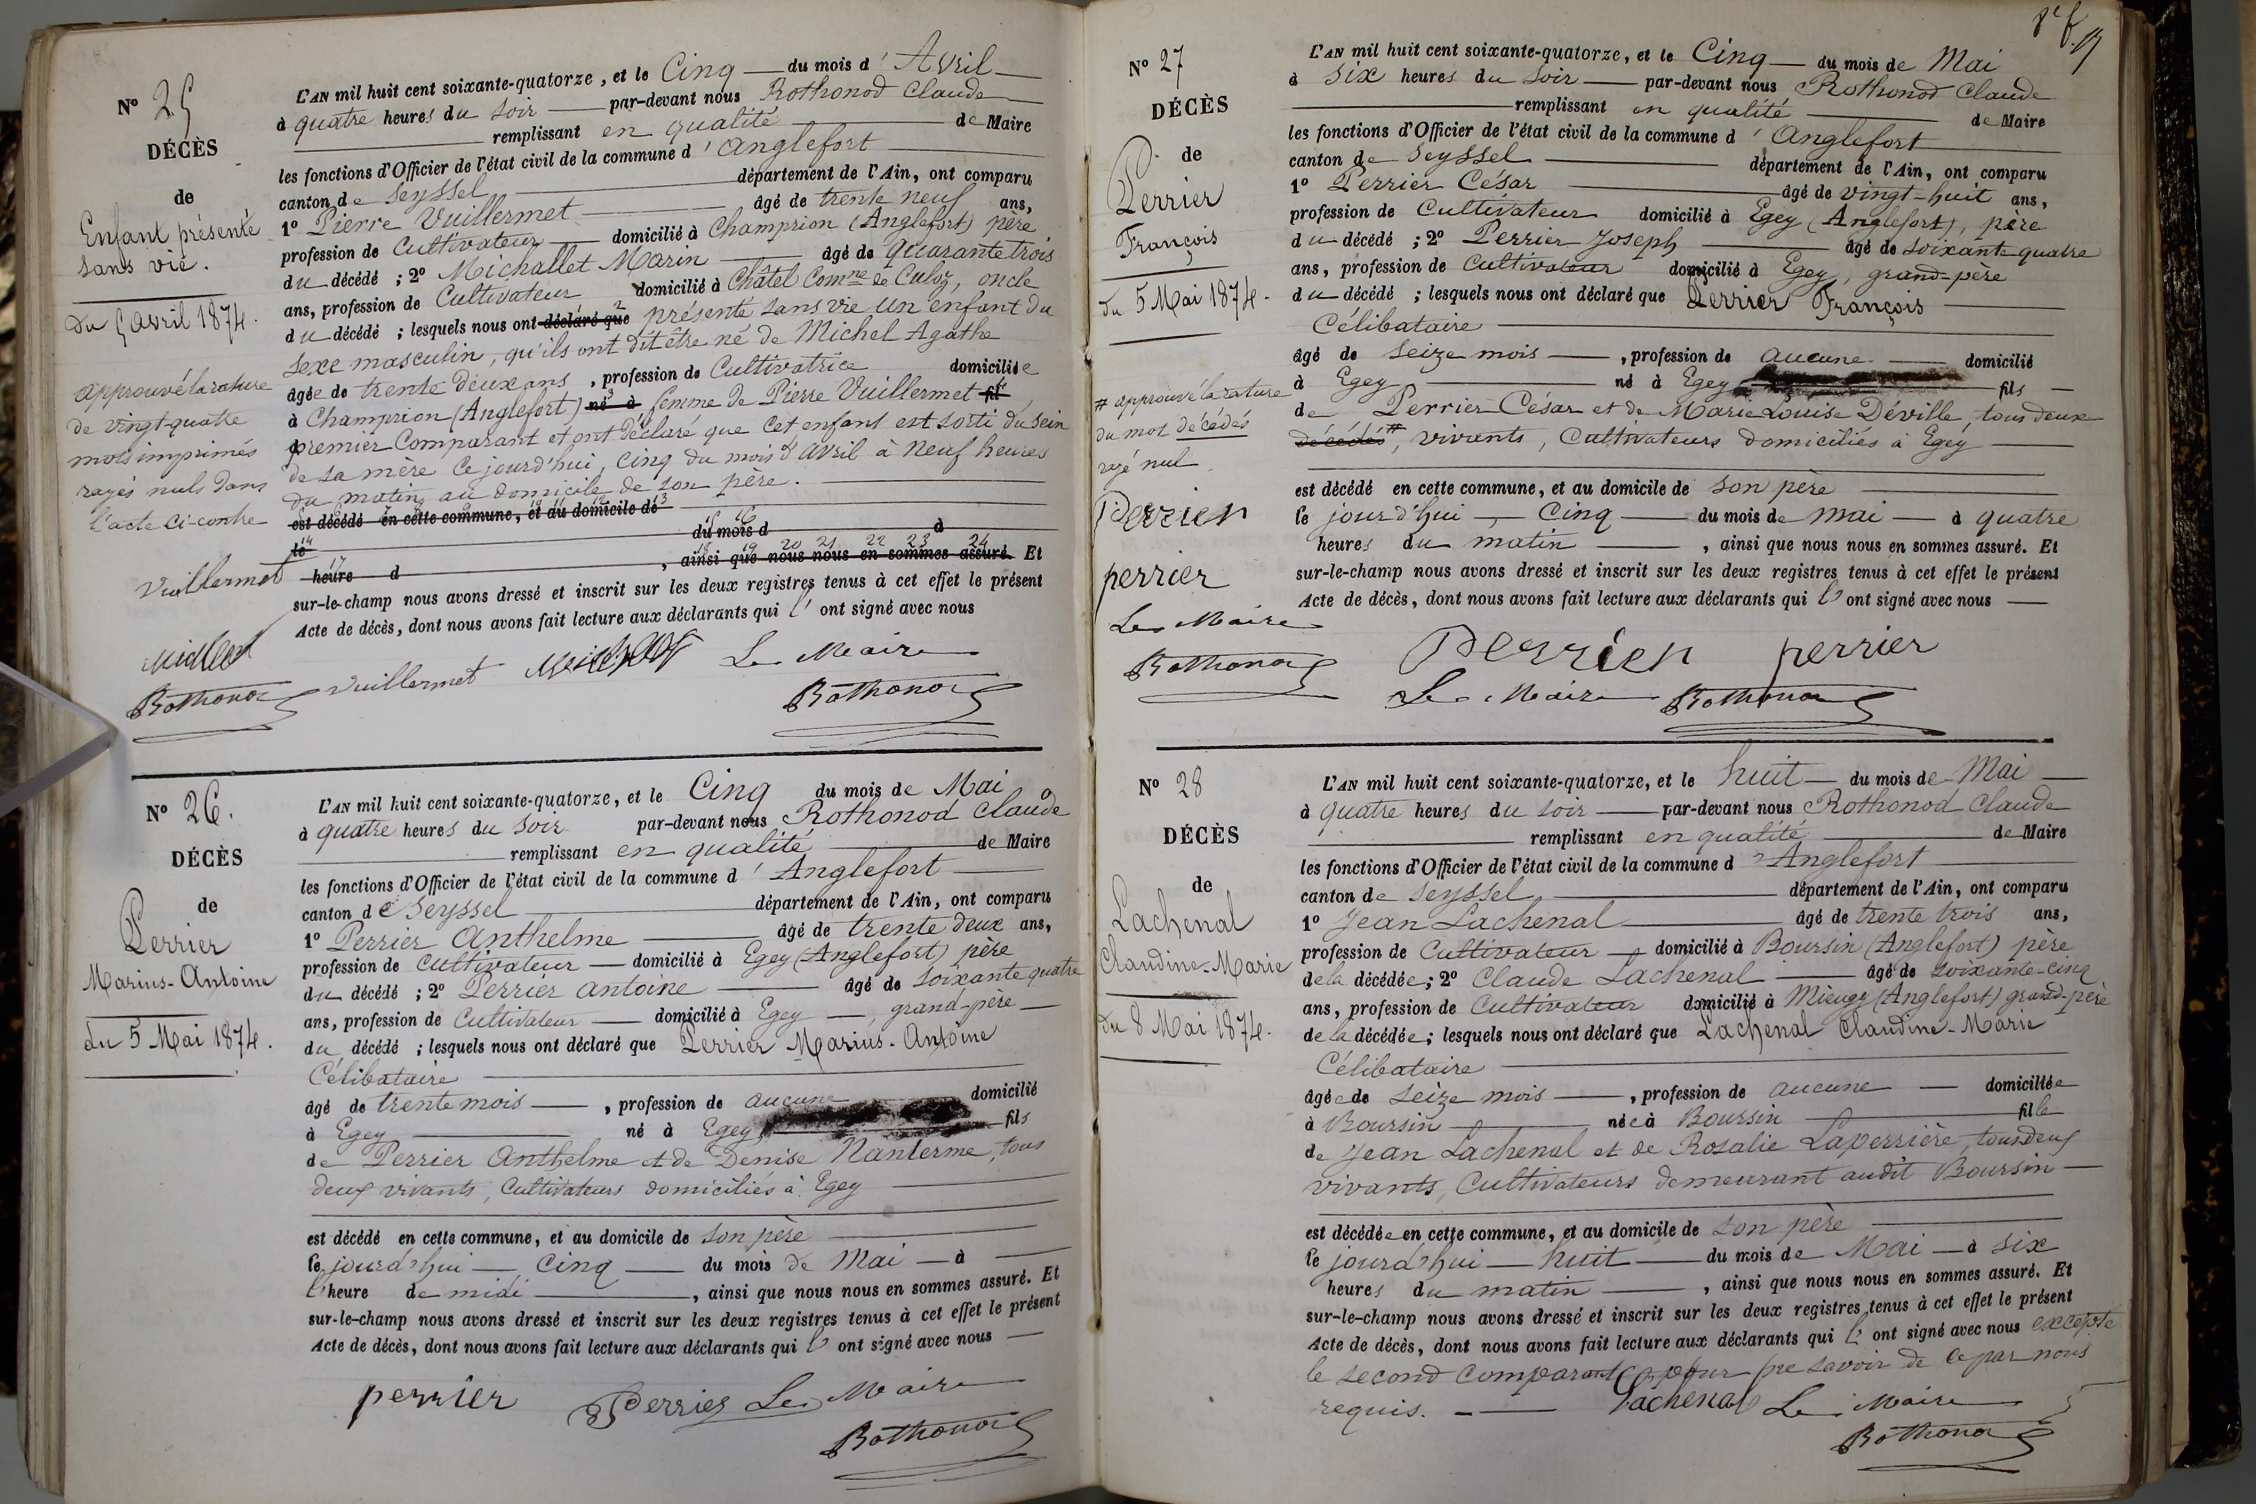 N° 25
DÉCÈS
de
Enfant présenté
sans vie.
du 5 avril 1874.
approuvé la rature
de vingt-quatre
mots imprimés
rayés nuls dans
l'acte ci-contre
Vuillermet
Rothonod
L'AN mil huit cent soixante-quatorze, et le Cinq du mois d'Avril
à quatre heures du soir par-devant nous Rothonod Claude
remplissant en qualité de Maire
les fonctions d'Officier de l'état civil de la commune d'Anglefort
canton de Seyssel département de l'Ain, ont comparu
1° Pierre Vuillermet âgé de trente neuf ans,
profession de Cultivateur domicilié à Champrion (Anglefort) père
du décédé ; 2° Michallet Marin âgé de Quarante trois
ans, profession de Cultivateur domicilié à Châtel Comne de Culoz, oncle
du décédé ; lesquels nous ont déclaré que 2 présenté sans vie un enfant du
sexe masculin, qu'ils ont dit être né de Michel Agathe
âgée de trente deux ans, profession de Cultivatrice domiciliée
à Champrion (Anglefort) né 3 à femme de Pierre Vuillermet fil
premier Comparant et ont déclaré que cet enfant est sorti du sein
de sa mère ce jourd'hui, cinq du mois d'avril à Neuf heures
du matin au domicile de son père.
est décédé en cette commune, et au domicile de
le 14 du mois d 16 à
heure 17 d , ainsi que nous nous en sommes assuré. 18 19 20 21 22 23 24 Et
sur-le-champ nous avons dressé et inscrit sur les deux registres tenus à cet effet le présent
Acte de décès, dont nous avons fait lecture aux déclarants qui l'ont signé avec nous
Vuillermet Le Maire
Rothonod
N° 26.
DÉCÈS
de
Perrier
Marius-Antoine
du 5 Mai 1874.
L'AN mil huit cent soixante-quatorze, et le Cinq du mois de Mai
à quatre heures du soir par-devant nous Rothonod Claude
remplissant en qualité de Maire
les fonctions d'Officier de l'état civil de la commune d'Anglefort
canton de Seyssel département de l'Ain, ont comparu
1° Perrier Anthelme âgé de trente deux ans,
profession de Cultivateur domicilié à Egey (Anglefort) père
du décédé ; 2° Perrier antoine âgé de soixante quatre
ans, profession de Cultivateur domicilié à Egey, grand-père
du décédé ; lesquels nous ont déclaré que Perrier Marius-Antoine
Célibataire
âgé de trente mois, profession de aucune domicilié
à Egey né à Egey fils
de Perrier Anthelme et de Denise Nanterme, tous
deux vivants, Cultivateurs domiciliés à Egey
est décédé en cette commune, et au domicile de son père
le jourd'hui Cinq du mois de Mai à
l'heure de midi, ainsi que nous nous en sommes assuré. Et
sur-le-champ nous avons dressé et inscrit sur les deux registres tenus à cet effet le présent
Acte de décès, dont nous avons fait lecture aux déclarants qui l'ont signé avec nous
perrier Perrier Le Maire
Rothonod
N° 27
DÉCÈS
de
Perrier
François
du 5 Mai 1874.
# approuvé la rature
du mot décédés
rayé nul.
Perrier
perrier
Le Maire
Rothonod
L'AN mil huit cent soixante-quatorze, et le Cinq du mois de Mai
à six heures du soir par-devant nous Rothonod Claude
remplissant en qualité de Maire
les fonctions d'Officier de l'état civil de la commune d'Anglefort
canton de Seyssel département de l'Ain, ont comparu
1° Perrier César âgé de vingt-huit ans,
profession de Cultivateur domicilié à Egey (Anglefort), père
du décédé ; 2° Perrier Joseph âgé de soixante quatre
ans, profession de Cultivateur domicilié à Egey, grand-père
du décédé ; lesquels nous ont déclaré que Perrier François
Célibataire
âgé de seize mois, profession de aucune domicilié
à Egey né à Egey fils
de Perrier César et de Marie Louise Déville, tous deux
décédés #, vivants, Cultivateurs domiciliés à Egey
est décédé en cette commune, et au domicile de son père
le jourd'hui, Cinq du mois de mai à quatre
heures du matin, ainsi que nous nous en sommes assuré. Et
sur-le-champ nous avons dressé et inscrit sur les deux registres tenus à cet effet le présent
Acte de décès, dont nous avons fait lecture aux déclarants qui l'ont signé avec nous
Perrier perrier
Le Maire Rothonod
N° 28
DÉCÈS
de
Lachenal
Claudine-Marie
du 8 Mai 1874.
L'AN mil huit cent soixante-quatorze, et le huit du mois de Mai
à quatre heures du soir par-devant nous Rothonod Claude
remplissant en qualité de Maire
les fonctions d'Officier de l'état civil de la commune d'Anglefort
canton de Seyssel département de l'Ain, ont comparu
1° Jean Lachenal âgé de trente trois ans,
profession de Cultivateur domicilié à Boursin (Anglefort) père
de la décédée ; 2° Claude Lachenal âgé de soixante-cinq
ans, profession de Cultivateur domicilié à Mieugy (Anglefort) grand-père
de la décédée ; lesquels nous ont déclaré que Lachenal Claudine-Marie
Célibataire
âgée de seize mois, profession de aucune domiciliée
à Boursin née à Boursin fille
de Jean Lachenal et de Rosalie Laperrière, tous deux
vivants, Cultivateurs demeurant audit Boursin
est décédée en cette commune, et au domicile de son père
le jourd'hui huit du mois de Mai à six
heures du matin, ainsi que nous nous en sommes assuré. Et
sur-le-champ nous avons dressé et inscrit sur les deux registres tenus à cet effet le présent
Acte de décès, dont nous avons fait lecture aux déclarants qui l'ont signé avec nous excepté
le second comparant pour ne savoir de ce par nous
requis. Lachenal Le Maire
Rothonod